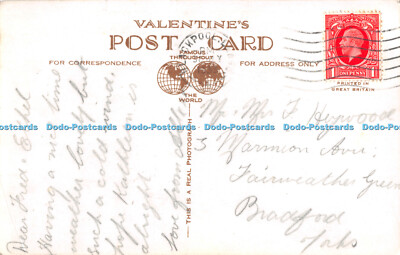 VALENTINE'S
POST CARD
FAMOUS THROUGHOUT
THE WORLD
FOR CORRESPONDENCE
FOR ADDRESS ONLY
POSTAGE
1 ONE PENNY 1
PRINTED IN
GREAT BRITAIN
THIS IS A REAL PHOTOGRAPH
Dear Fred & Ethel
Having a nice time
weather lovely but
such a cold wind.
hope Kathleen is
alright
love from
Mr. Mrs F. Heywood
3 Marmion Ave.
Fairweather Green
Bradford
Yorks
Dodo-Postcards Dodo-Postcards Dodo-Postcards Dodo-Postcards Dodo-Postcards